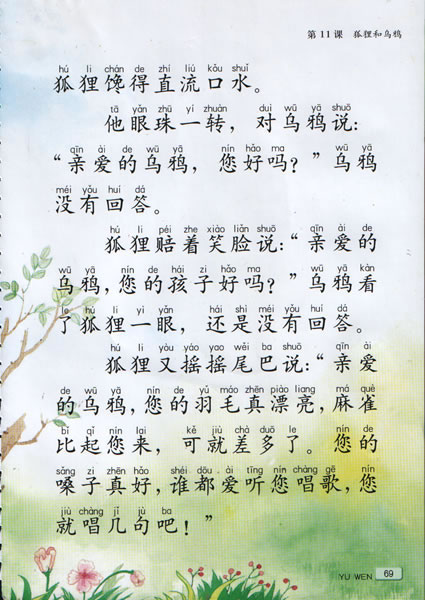 第11课 狐狸和乌鸦
hú li chán de zhí liú kǒu shuǐ
狐狸馋得直流口水。
tā yǎn zhū yi zhuàn duì wū yā shuō
他眼珠一转，对乌鸦说：
qīn ài de wū yā nín hǎo ma wū yā
“亲爱的乌鸦，您好吗？”乌鸦
méi yǒu huí dá
没有回答。
hú li péi zhe xiào liǎn shuō qīn ài de
狐狸赔着笑脸说：“亲爱的
wū yā nín de hái zi hǎo ma wū yā kàn
乌鸦，您的孩子好吗？”乌鸦看
le hú li yi yǎn hái shi méi yǒu huí dá
了狐狸一眼，还是没有回答。
hú li yòu yáo yao wěi ba shuō qīn ài
狐狸又摇摇尾巴说：“亲爱
de wū yā nín de yǔ máo zhēn piào liang má què
的乌鸦，您的羽毛真漂亮，麻雀
bǐ qǐ nín lái kě jiù chà duō le nín de
比起您来，可就差多了。您的
sǎng zi zhēn hǎo shéi dōu ài tīng nín chàng gē nín
嗓子真好，谁都爱听您唱歌，您
jiù chàng jǐ jù ba
就唱几句吧！”
YU WEN 69